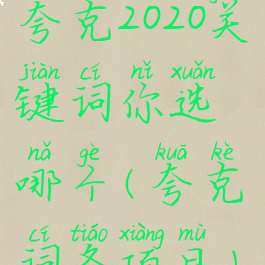 夸克2020关
jiàn cí nǐ xuǎn
键词你选
nǎ gè kuā kè
哪个(夸克
cí tiáo xiàng mù
词条项目)